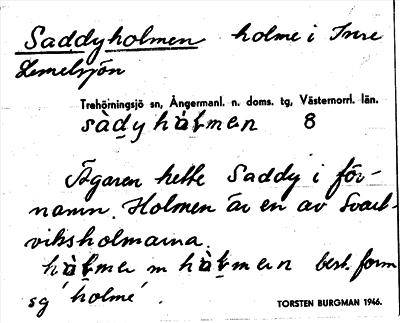 Saddyholmen holme i Inre
Lemelsjön
Trehörningsjö sn, Ångermanl. n. doms. tg, Västernorrl. län.
sàdy hàlmen 8
Ägaren hette Saddy i för-
namn. Holmen är en av Svart-
viksholmarna.
hàlme m hàlmen best. form
sg 'holme'.
TORSTEN BURGMAN 1946.